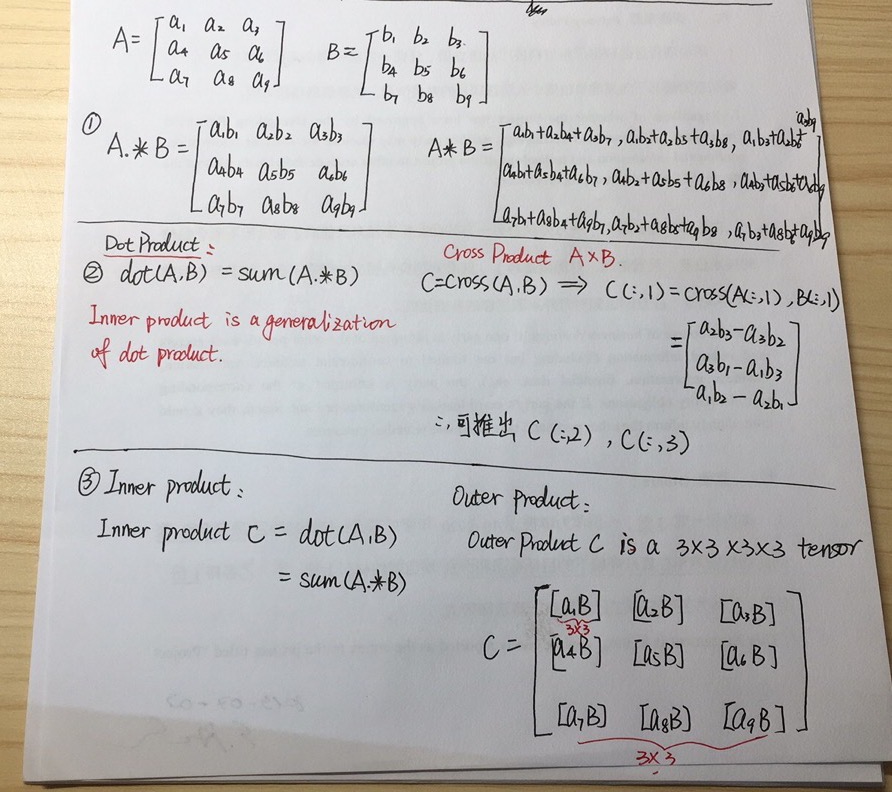 A= [ a1 a2 a3
a4 a5 a6
a7 a8 a9 ]
B= [ b1 b2 b3
b4 b5 b6
b7 b8 b9 ]
① A.*B = [ a1b1 a2b2 a3b3
a4b4 a5b5 a6b6
a7b7 a8b8 a9b9 ]
A*B = [ a1b1+a2b4+a3b7, a1b2+a2b5+a3b8, a1b3+a2b6+a3b9
a4b1+a5b4+a6b7, a4b2+a5b5+a6b8, a4b3+a5b6+a6b9
a7b1+a8b4+a9b7, a7b2+a8b5+a9b8, a7b3+a8b6+a9b9 ]
Dot Product:
② dot(A,B) = sum(A.*B)
Inner product is a generalization
of dot product.
Cross Product A×B.
C=Cross(A,B) ⟹ C(:,1)=cross(A(:,1), B(:,1)
= [ a2b3-a3b2
a3b1-a1b3
a1b2-a2b1 ]
∴可推出 C(:,2), C(:,3)
③ Inner product:
Inner product C = dot(A,B)
= sum(A.*B)
Outer product:
Outer Product C is a 3×3×3×3 tensor
C= [ [a1B] [a2B] [a3B]
3×3
[a4B] [a5B] [a6B]
[a7B] [a8B] [a9B] ]
3×3